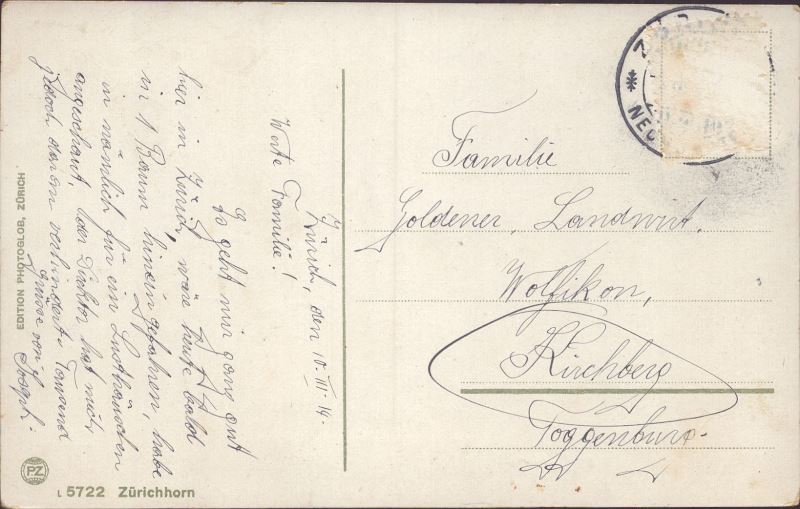 Zürich, den 10. III. 14.
Werte Familie!
Es geht mir ganz gut
hier in Zürich, wäre heute bald
in 1 Baum hineingefahren, habe
in nämlich für ein Lusthäuschen
angeschaut, der Direktor hat mich
jedoch daran verhindert. Tausend
Grüsse von
Joseph.
Familie
Goldener, Landwirt,
Wolfikon,
Kirchberg
Toggenburg.
EDITION PHOTOGLOB, ZÜRICH
PZ
L 5722 Zürichhorn